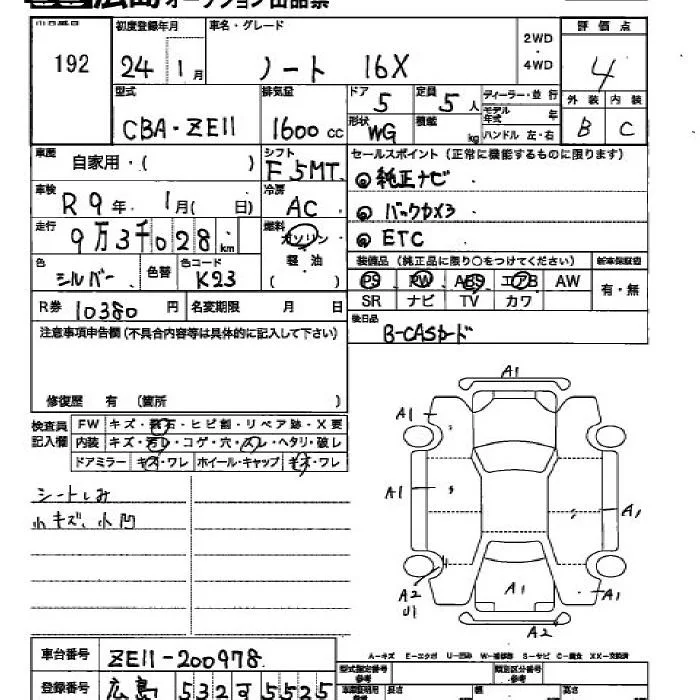 広島オークション出品票
出品番号 初度登録年月 車名・グレード 評価点
192 24年1月 ノート 16X 2WD・4WD 4
型式 排気量 ドア 定員 ディーラー・並行 外装 内装
CBA-ZE11 1600cc 5 5人 モデル年式 年 B C
形状 WG 積載 kg ハンドル 左・右
車歴 自家用・( ) シフト F 5MT セールスポイント(正常に機能するものに限ります)
車検 R9年 1月( 日) 冷房 AC ◎純正ナビ
走行 9万3千028km 燃料 ガソリン 軽油 ◎バックカメラ
◎ETC
色 シルバー 色替 色コード K23 装備品(純正品に限り○をつけてください) 新車保証書
PS PW ABS エアB AW 有・無
SR ナビ TV カワ
R券 10380円 名変期限 月 日 後日品
B-CASカード
注意事項申告欄(不具合内容等は具体的に記入して下さい)
修復歴 有 (箇所 )
検査員記入欄 FW キズ・飛石・ヒビ割・リペア跡・X要
内装 キズ・汚レ・コゲ・穴・スレ・ヘタリ・破レ
ドアミラー キズ・ワレ ホイール・キャップ キズ・ワレ
シートしみ
小キズ、小凹
A1
A1
A1
A1
A2
U1
A1
A1
A2
A-キズ E-エクボ U-凹み W-補修跡 S-サビ C-腐食 XX-交換済
車台番号 ZE11-200978 型式指定番号 参考 類別区分番号 参考
登録番号 広島 532 す 5525 長さ 幅 高さ